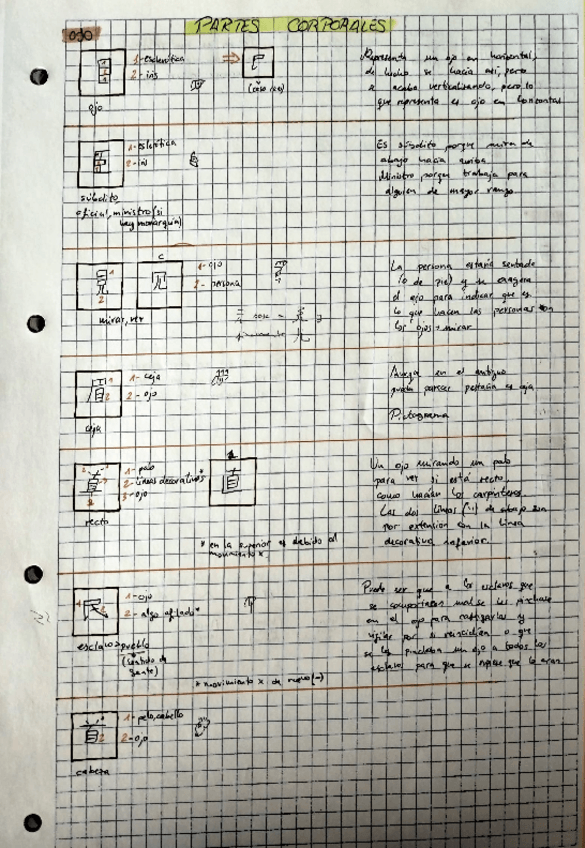 PARTES CORPORALES
OJO
1- esclerótica
2- iris
(caso raro)
ojo
Representa un ojo en horizontal,
de hecho se hacía así, pero
se acaba verticalizando, pero lo
que representa es ojo en horizontal
1- esclerótica
2- iris
súbdito
oficial, ministro (si
hay monarquía)
Es súbdito porque mira de
abajo hacia arriba
Ministro porque trabaja para
alguien de mayor rango.
1- ojo
2- persona
mirar, ver
La persona estaría sentada
(o de pie) y se exagera
el ojo para indicar que es
lo que hacen las personas con
los ojos: mirar
1- ceja
2- ojo
ceja
Aunque en el antiguo
pueda parecer pestaña es ceja
Pictograma
1- palo
2- líneas decorativas*
3- ojo
recto
* en la superior es debido al
movimiento x
Un ojo mirando un palo
para ver si está recto
como hacían los carpinteros.
Las dos líneas de abajo son
por extensión con la línea
decorativa inferior.
1- ojo
2- algo afilado*
esclavo > pueblo
(sentido de
gente)
* movimiento x de nuevo (-)
Puede ser que a los esclavos que
se comportasen mal se les pinchase
en el ojo para castigarlos y
si reincidían o que
se les pinchaba un ojo a todos los
esclavos para que se supiese que lo eran
1- pelo, cabello
2- ojo
cabeza